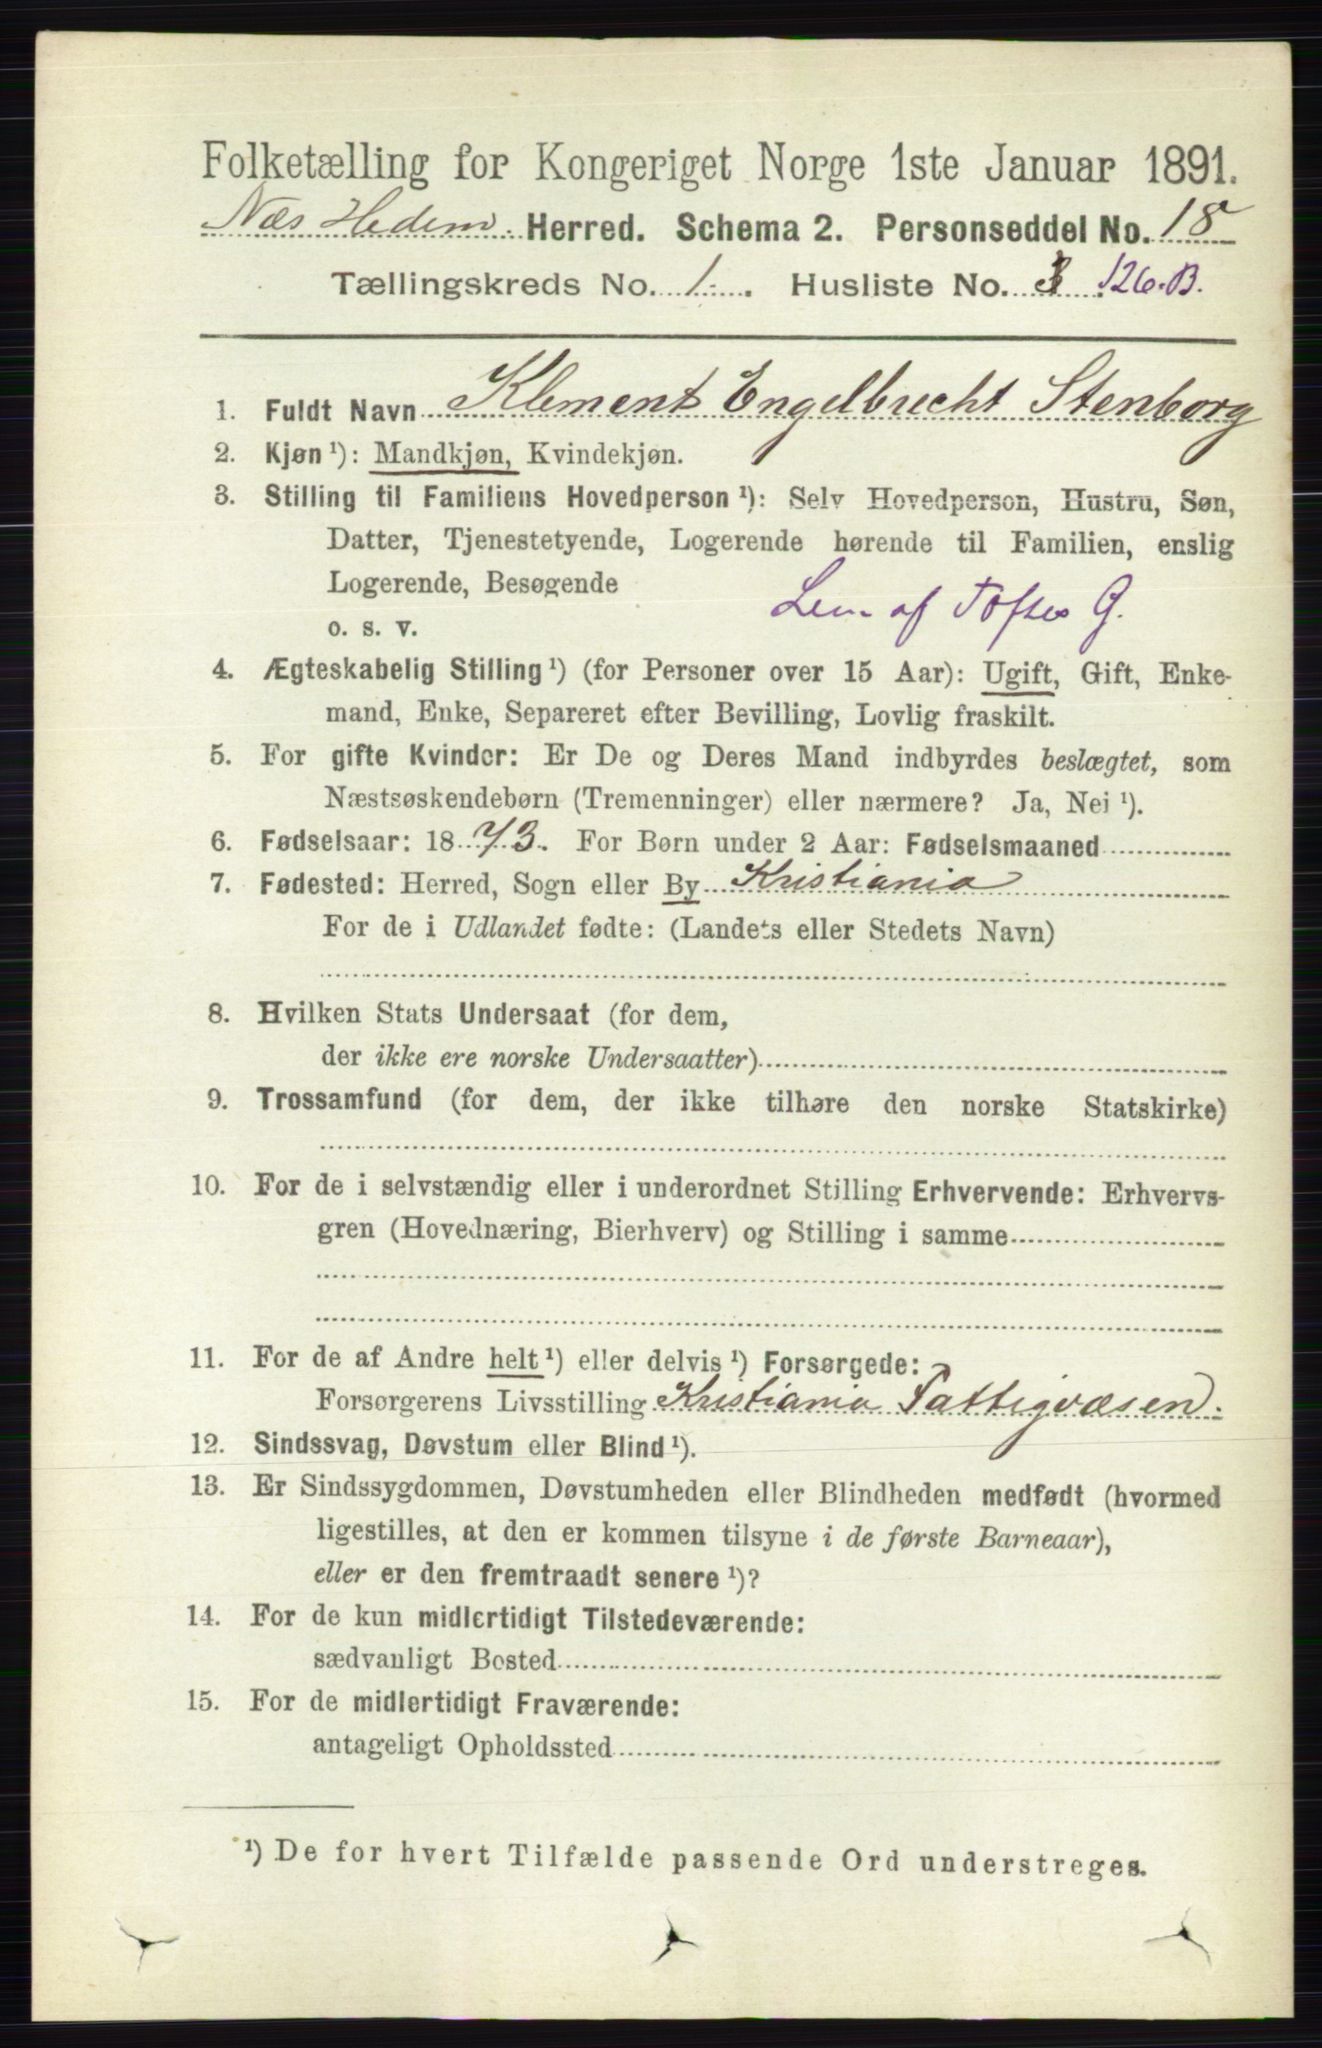 Folketælling for Kongeriget Norge 1ste Januar 1891.
Næs Hedem. Herred. Schema 2. Personseddel No. 18
Tællingskreds No. 1. Husliste No. 3 126.B.
1. Fuldt Navn Klement Engelbrecht Stenborg
2. Kjøn ¹): Mandkjøn, Kvindekjøn.
3. Stilling til Familiens Hovedperson ¹): Selv Hovedperson, Hustru, Søn,
Datter, Tjenestetyende, Logerende hørende til Familien, enslig
Logerende, Besøgende
o. s. v. Lem af Toftes G.
4. Ægteskabelig Stilling ¹) (for Personer over 15 Aar): Ugift, Gift, Enke-
mand, Enke, Separeret efter Bevilling, Lovlig fraskilt.
5. For gifte Kvinder: Er De og Deres Mand indbyrdes beslægtet, som
Næstsøskendebørn (Tremenninger) eller nærmere? Ja, Nei ¹).
6. Fødselsaar: 1873. For Børn under 2 Aar: Fødselsmaaned
7. Fødested: Herred, Sogn eller By Kristiania
For de i Udlandet fødte: (Landets eller Stedets Navn)
8. Hvilken Stats Undersaat (for dem,
der ikke ere norske Undersaatter)
9. Trossamfund (for dem, der ikke tilhøre den norske Statskirke)
10. For de i selvstændig eller i underordnet Stilling Erhvervende: Erhvervs-
gren (Hovednæring, Bierhverv) og Stilling i samme
11. For de af Andre helt ¹) eller delvis ¹) Forsørgede:
Forsørgerens Livsstilling Kristiania Fattigvæsen.
12. Sindssvag, Døvstum eller Blind ¹).
13. Er Sindssygdommen, Døvstumheden eller Blindheden medfødt (hvormed
ligestilles, at den er kommen tilsyne i de første Barneaar),
eller er den fremtraadt senere ¹)?
14. For de kun midlertidigt Tilstedeværende:
sædvanligt Bosted
15. For de midlertidigt Fraværende:
antageligt Opholdssted
¹) De for hvert Tilfælde passende Ord understreges.